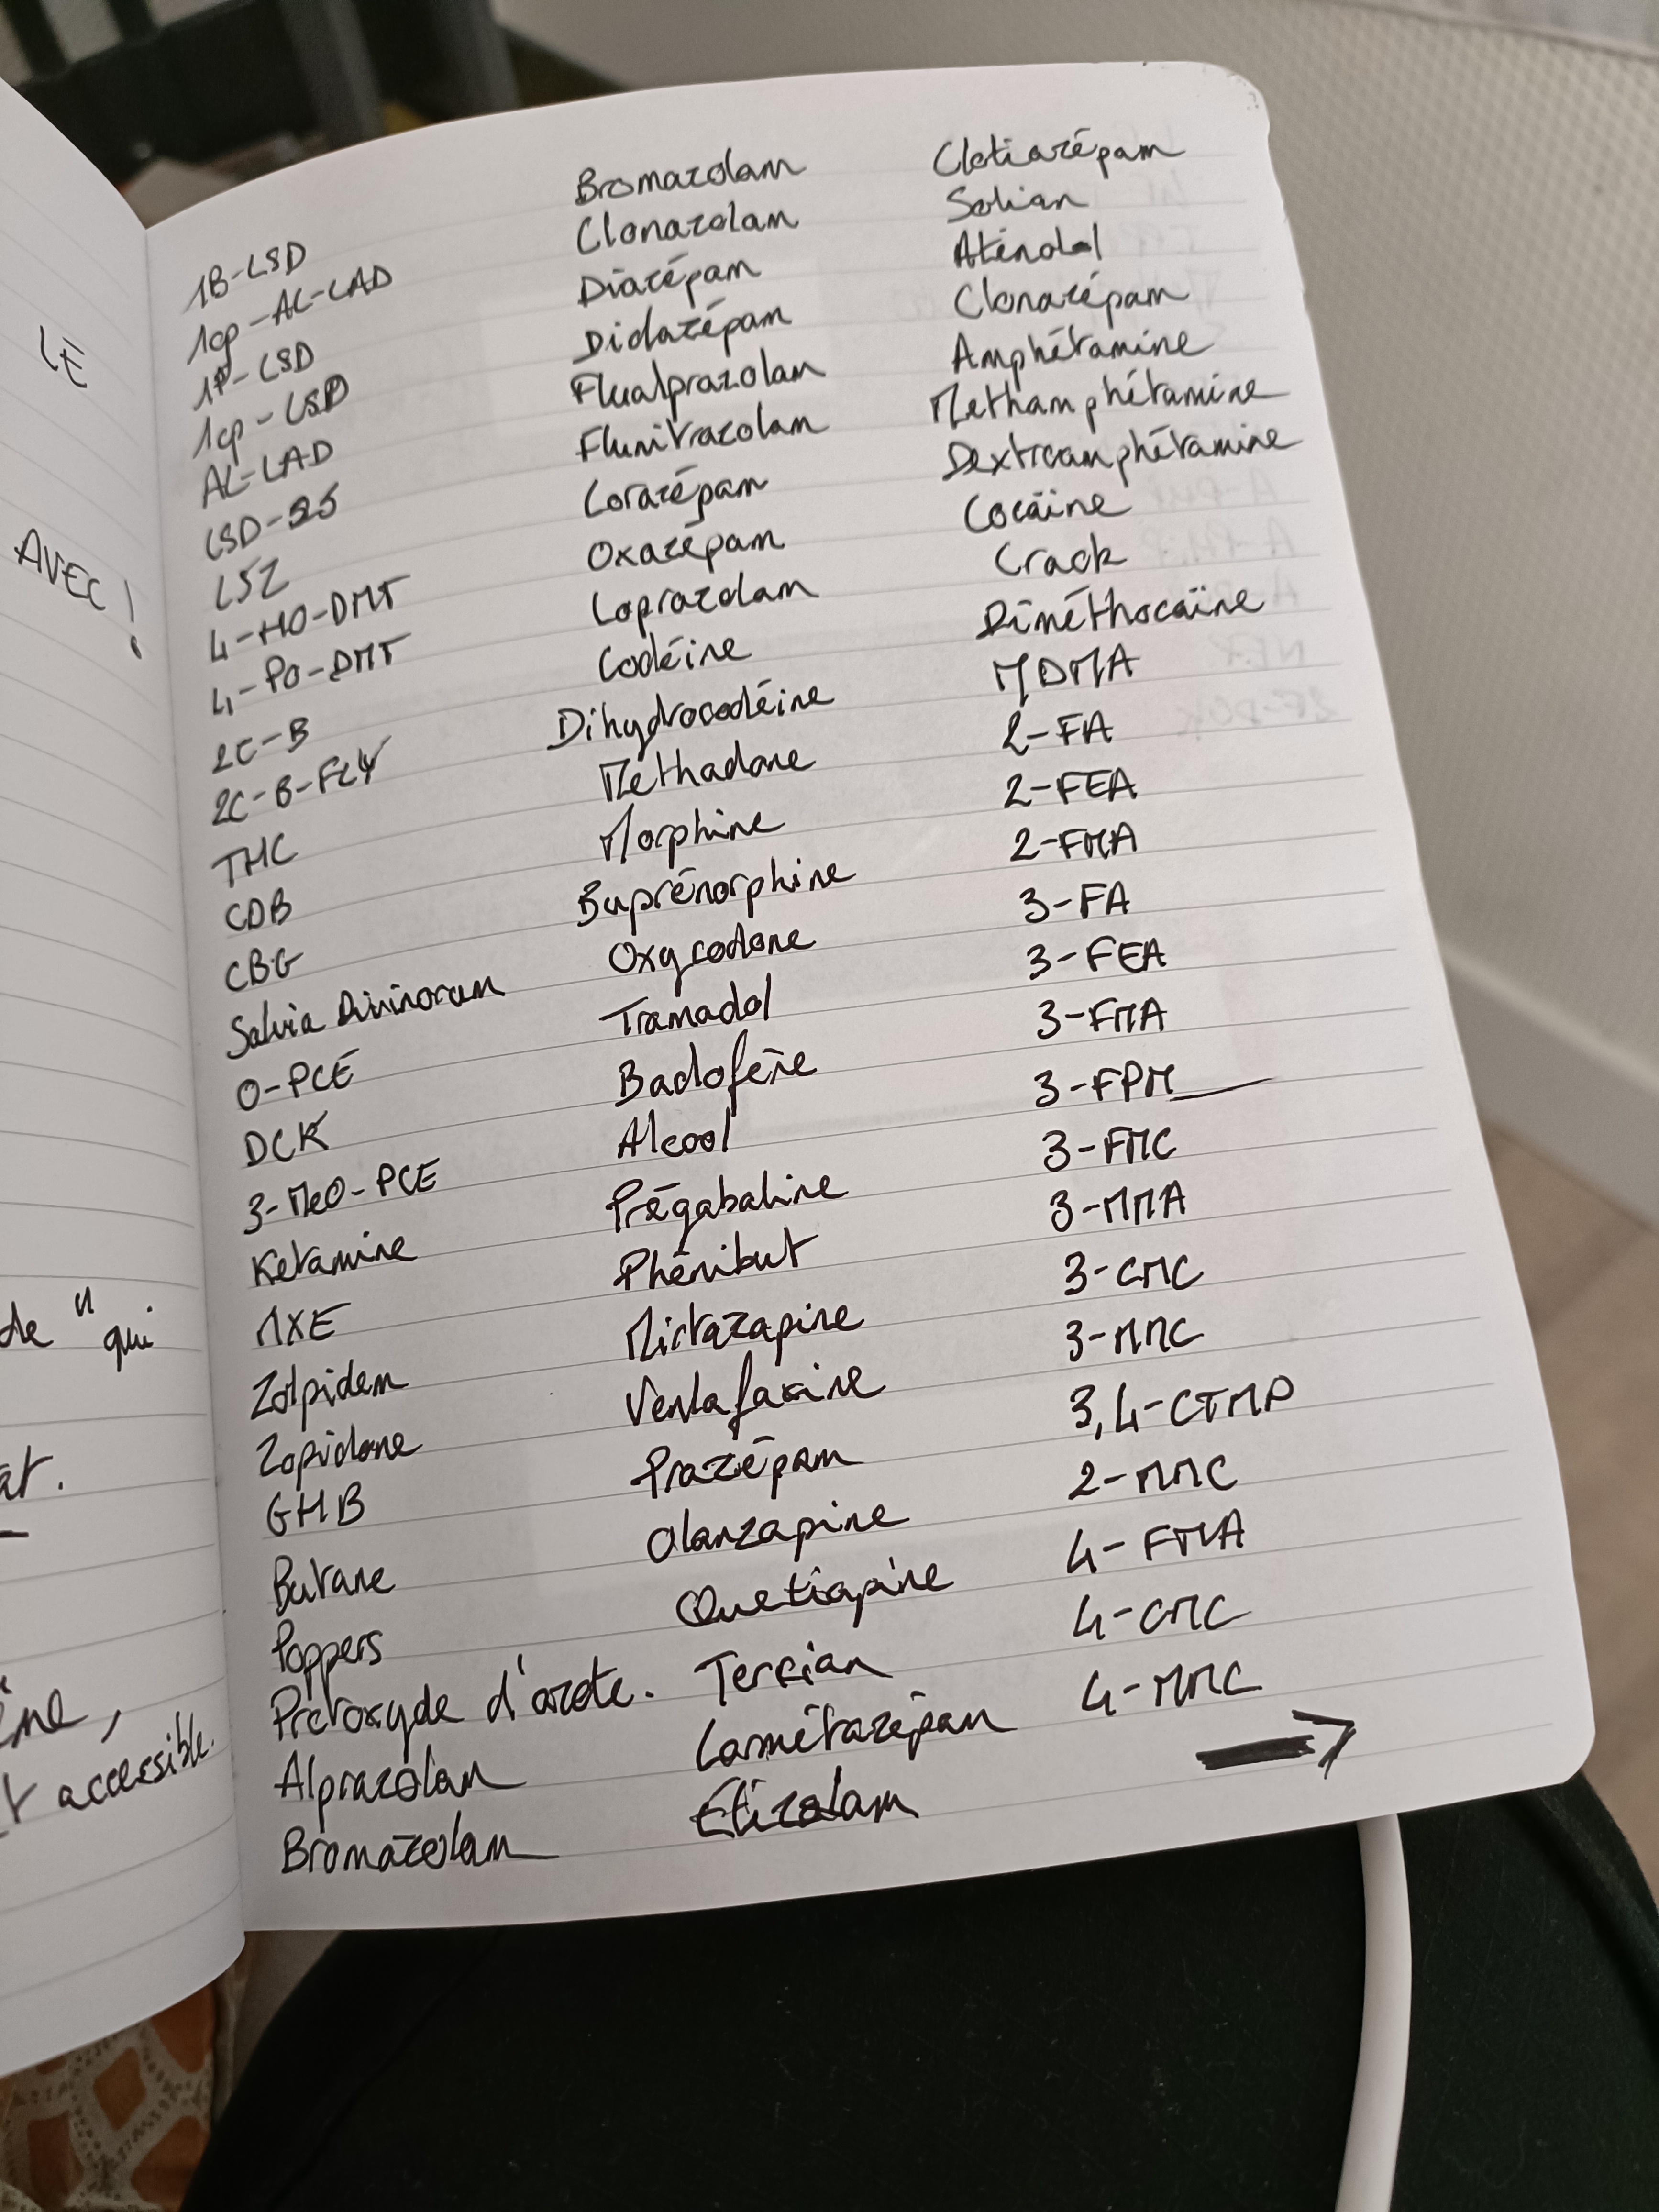 LE
AVEC !
de "qui
at.
ine,
t accessible.
1B-LSD
1cp-AL-LAD
1P-LSD
1cp-LSD
AL-LAD
LSD-25
LSZ
4-HO-DMT
4-PO-DMT
2C-B
2C-B-FLY
THC
CDB
CBG
Salvia Divinorum
O-PCE
DCK
3-MeO-PCE
Ketamine
MXE
Zolpidem
Zopidone
GHB
Butane
Poppers
Protoxyde d'azote.
Alprazolam
Bromazolam
Bromazolam
Clonazolam
Diazépam
Didazépam
Flualprazolam
Flunitrazolam
Lorazépam
Oxazépam
Loprazolam
Codéine
Dihydrocodéine
Méthadone
Morphine
Buprénorphine
Oxycodone
Tramadol
Baclofène
Alcool
Prégabaline
Phénibut
Mirtazapine
Venlafaxine
Prazépam
Olanzapine
Quetiapine
Tercian
Lormétazépam
Étizolam
Clotiazépam
Solian
Aténolol
Clonazépam
Amphétamine
Methamphétamine
Dextroamphétamine
Cocaïne
Crack
Diméthocaïne
MDMA
2-FA
2-FEA
2-FMA
3-FA
3-FEA
3-FMA
3-FPM
3-FMC
3-MMA
3-CMC
3-MMC
3,4-CTMP
2-MMC
4-FMA
4-CMC
4-MMC